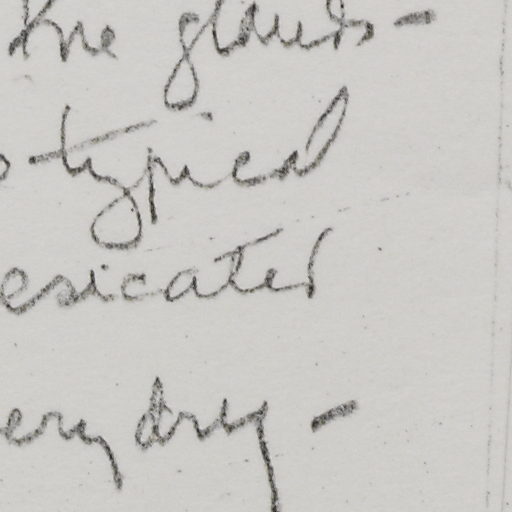 the glands -
typical
esicated
ery dry -